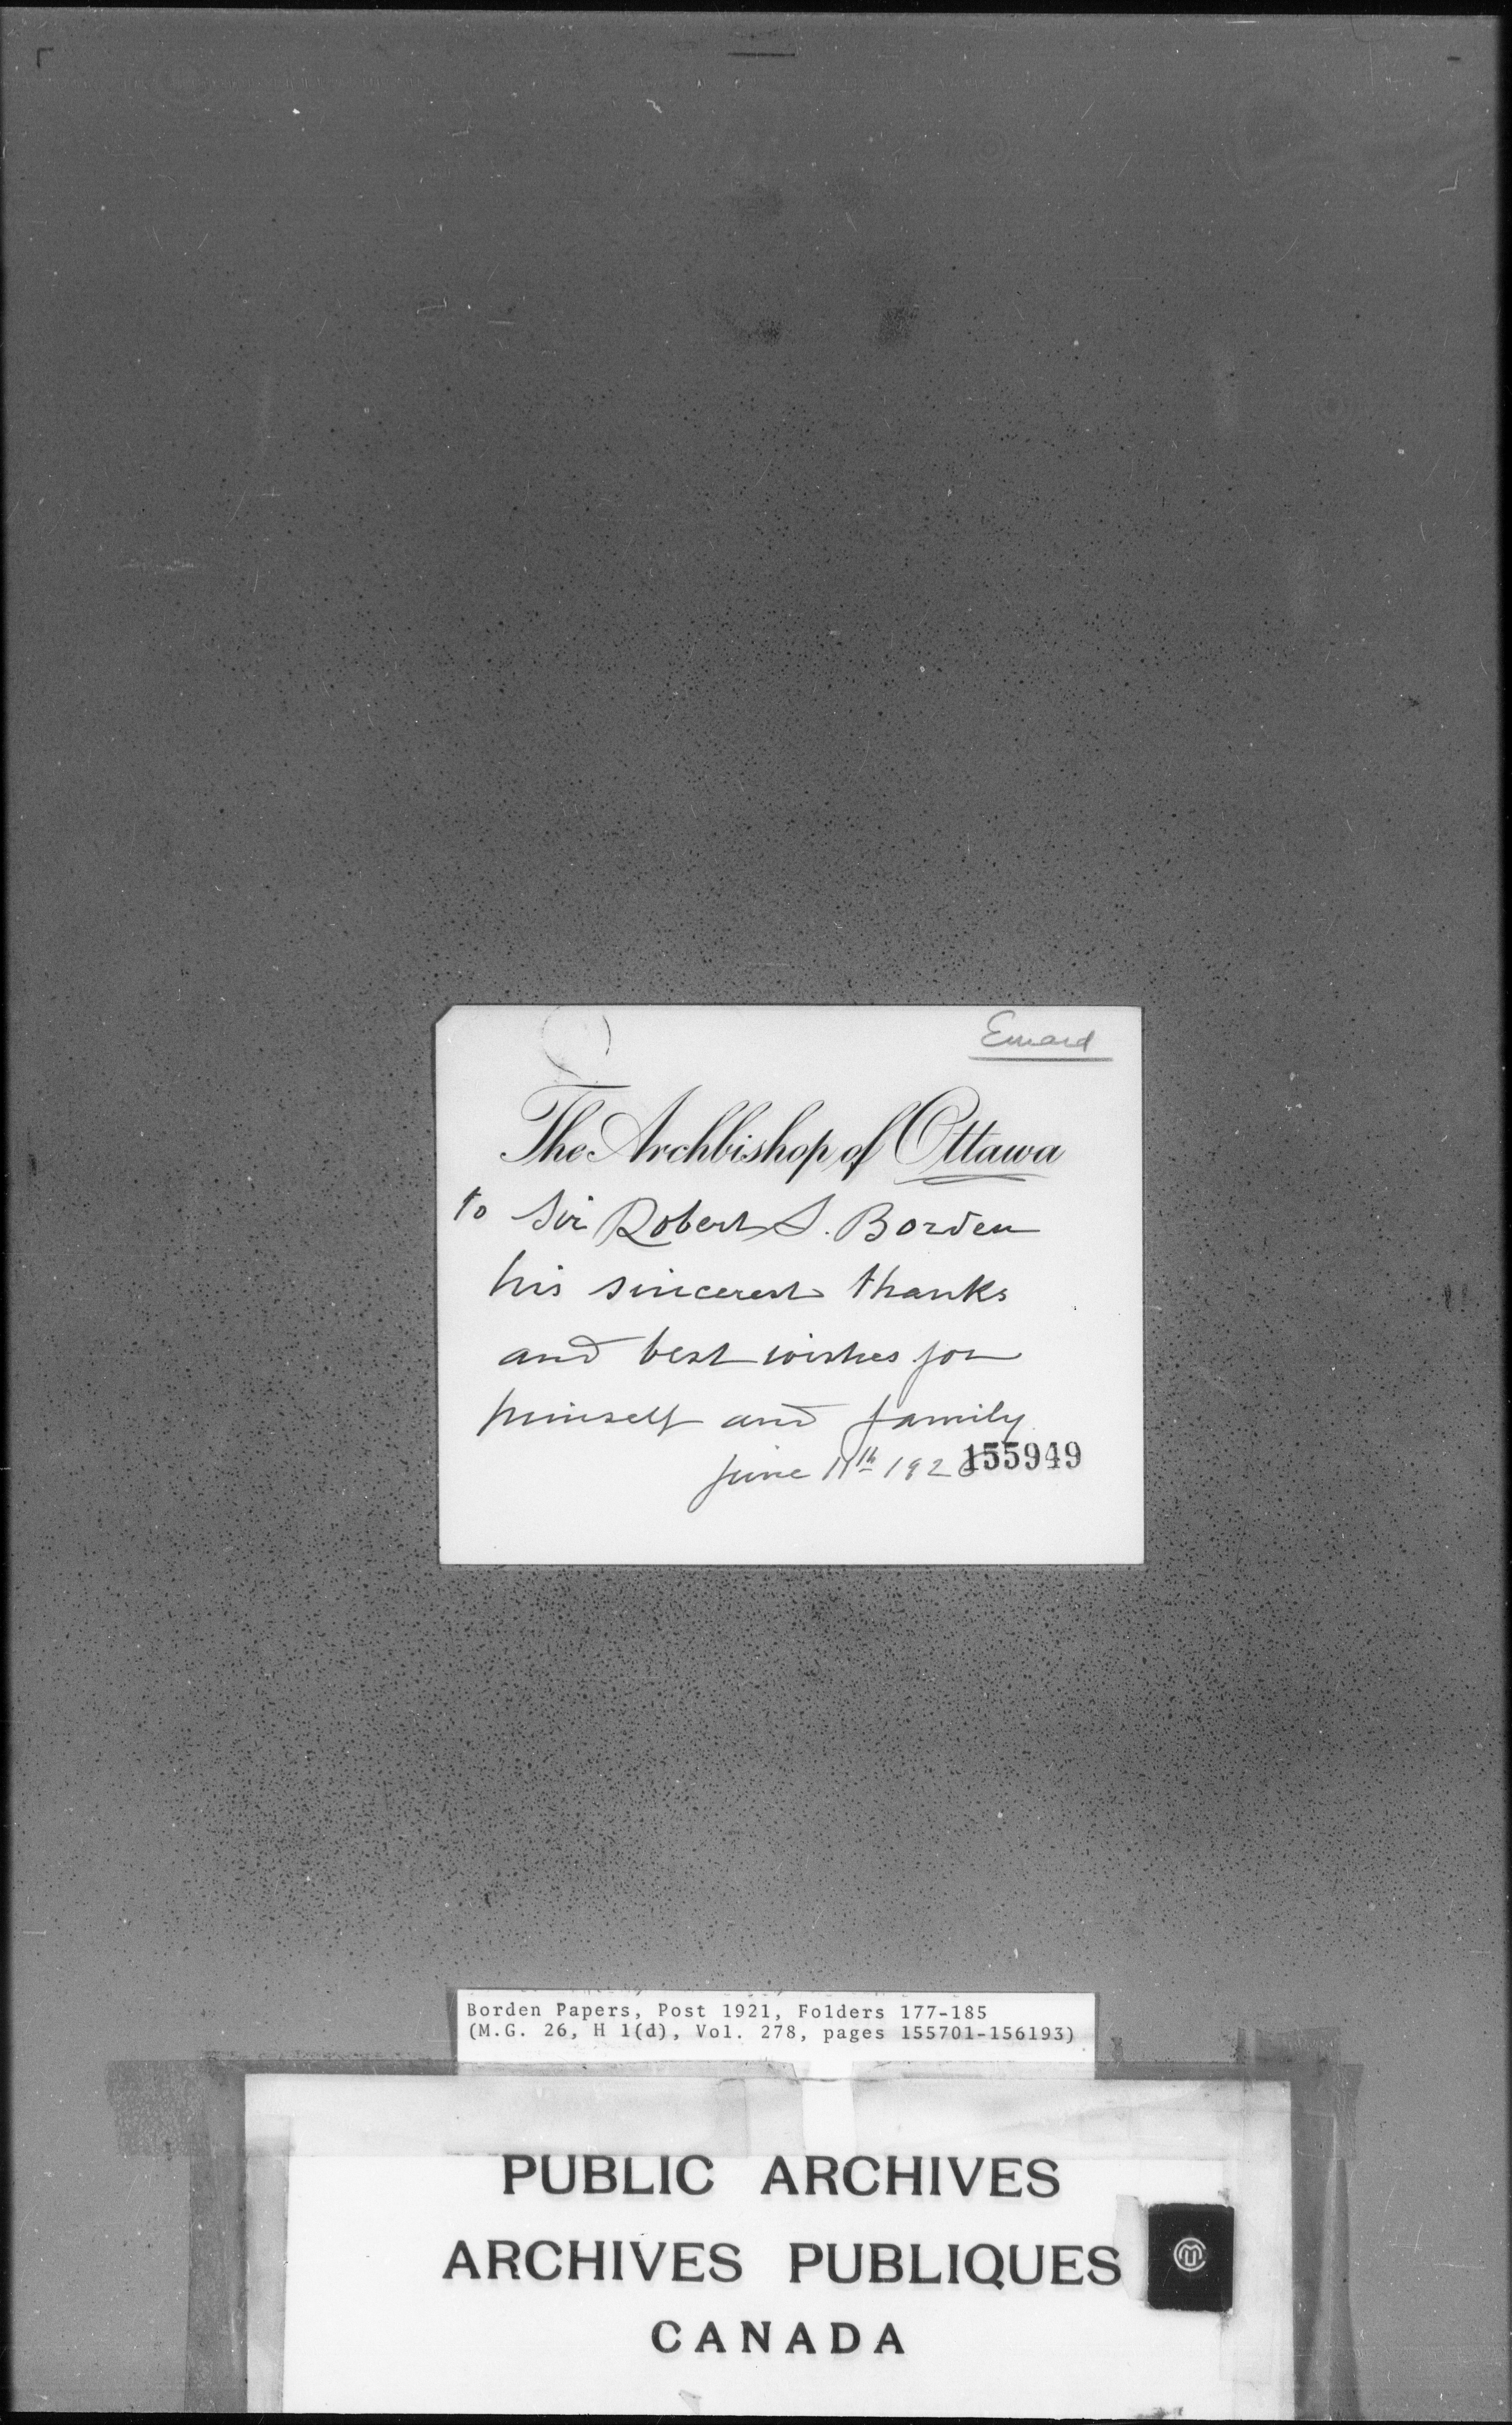 Emard
The Archbishop of Ottawa
to Sir Robert L. Borden
his sincerest thanks
and best wishes for
himself and family
June 11th 192
155949
Borden Papers, Post 1921, Folders 177-185
(M.G. 26, H 1(d), Vol. 278, pages 155701-156193)
PUBLIC ARCHIVES
ARCHIVES PUBLIQUES
CANADA